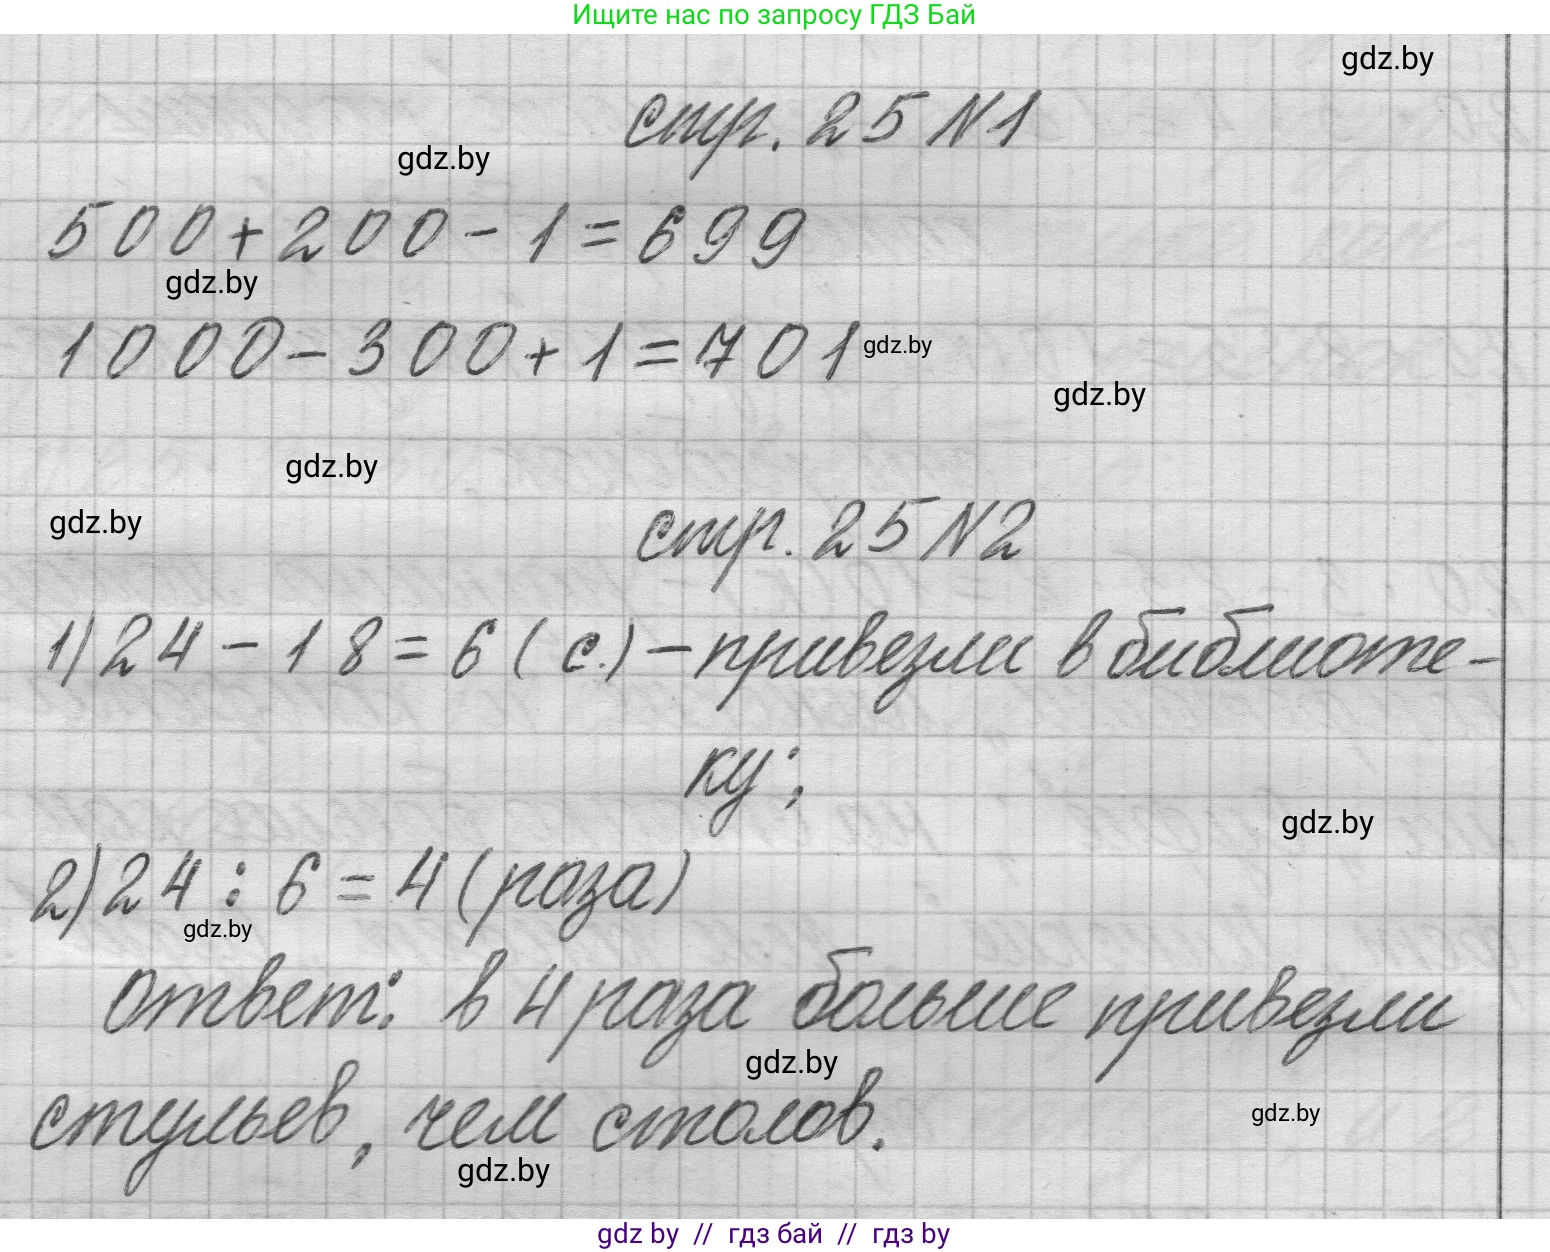 Ищите нас по запросу ГДЗ Бай
gdz.by
стр. 25 N1
gdz.by
500+200-1=699
gdz.by
1000-300+1=701
gdz.by
gdz.by
gdz.by
gdz.by
стр. 25 N2
1) 24-18=6 (с.) – привезли в библиоте-
ку;
gdz.by
2) 24:6=4 (раза)
gdz.by
Ответ: в 4 раза больше привезли
gdz.by
стульев, чем столов.
gdz.by
gdz.by
gdz by // гдз бай // гдз by